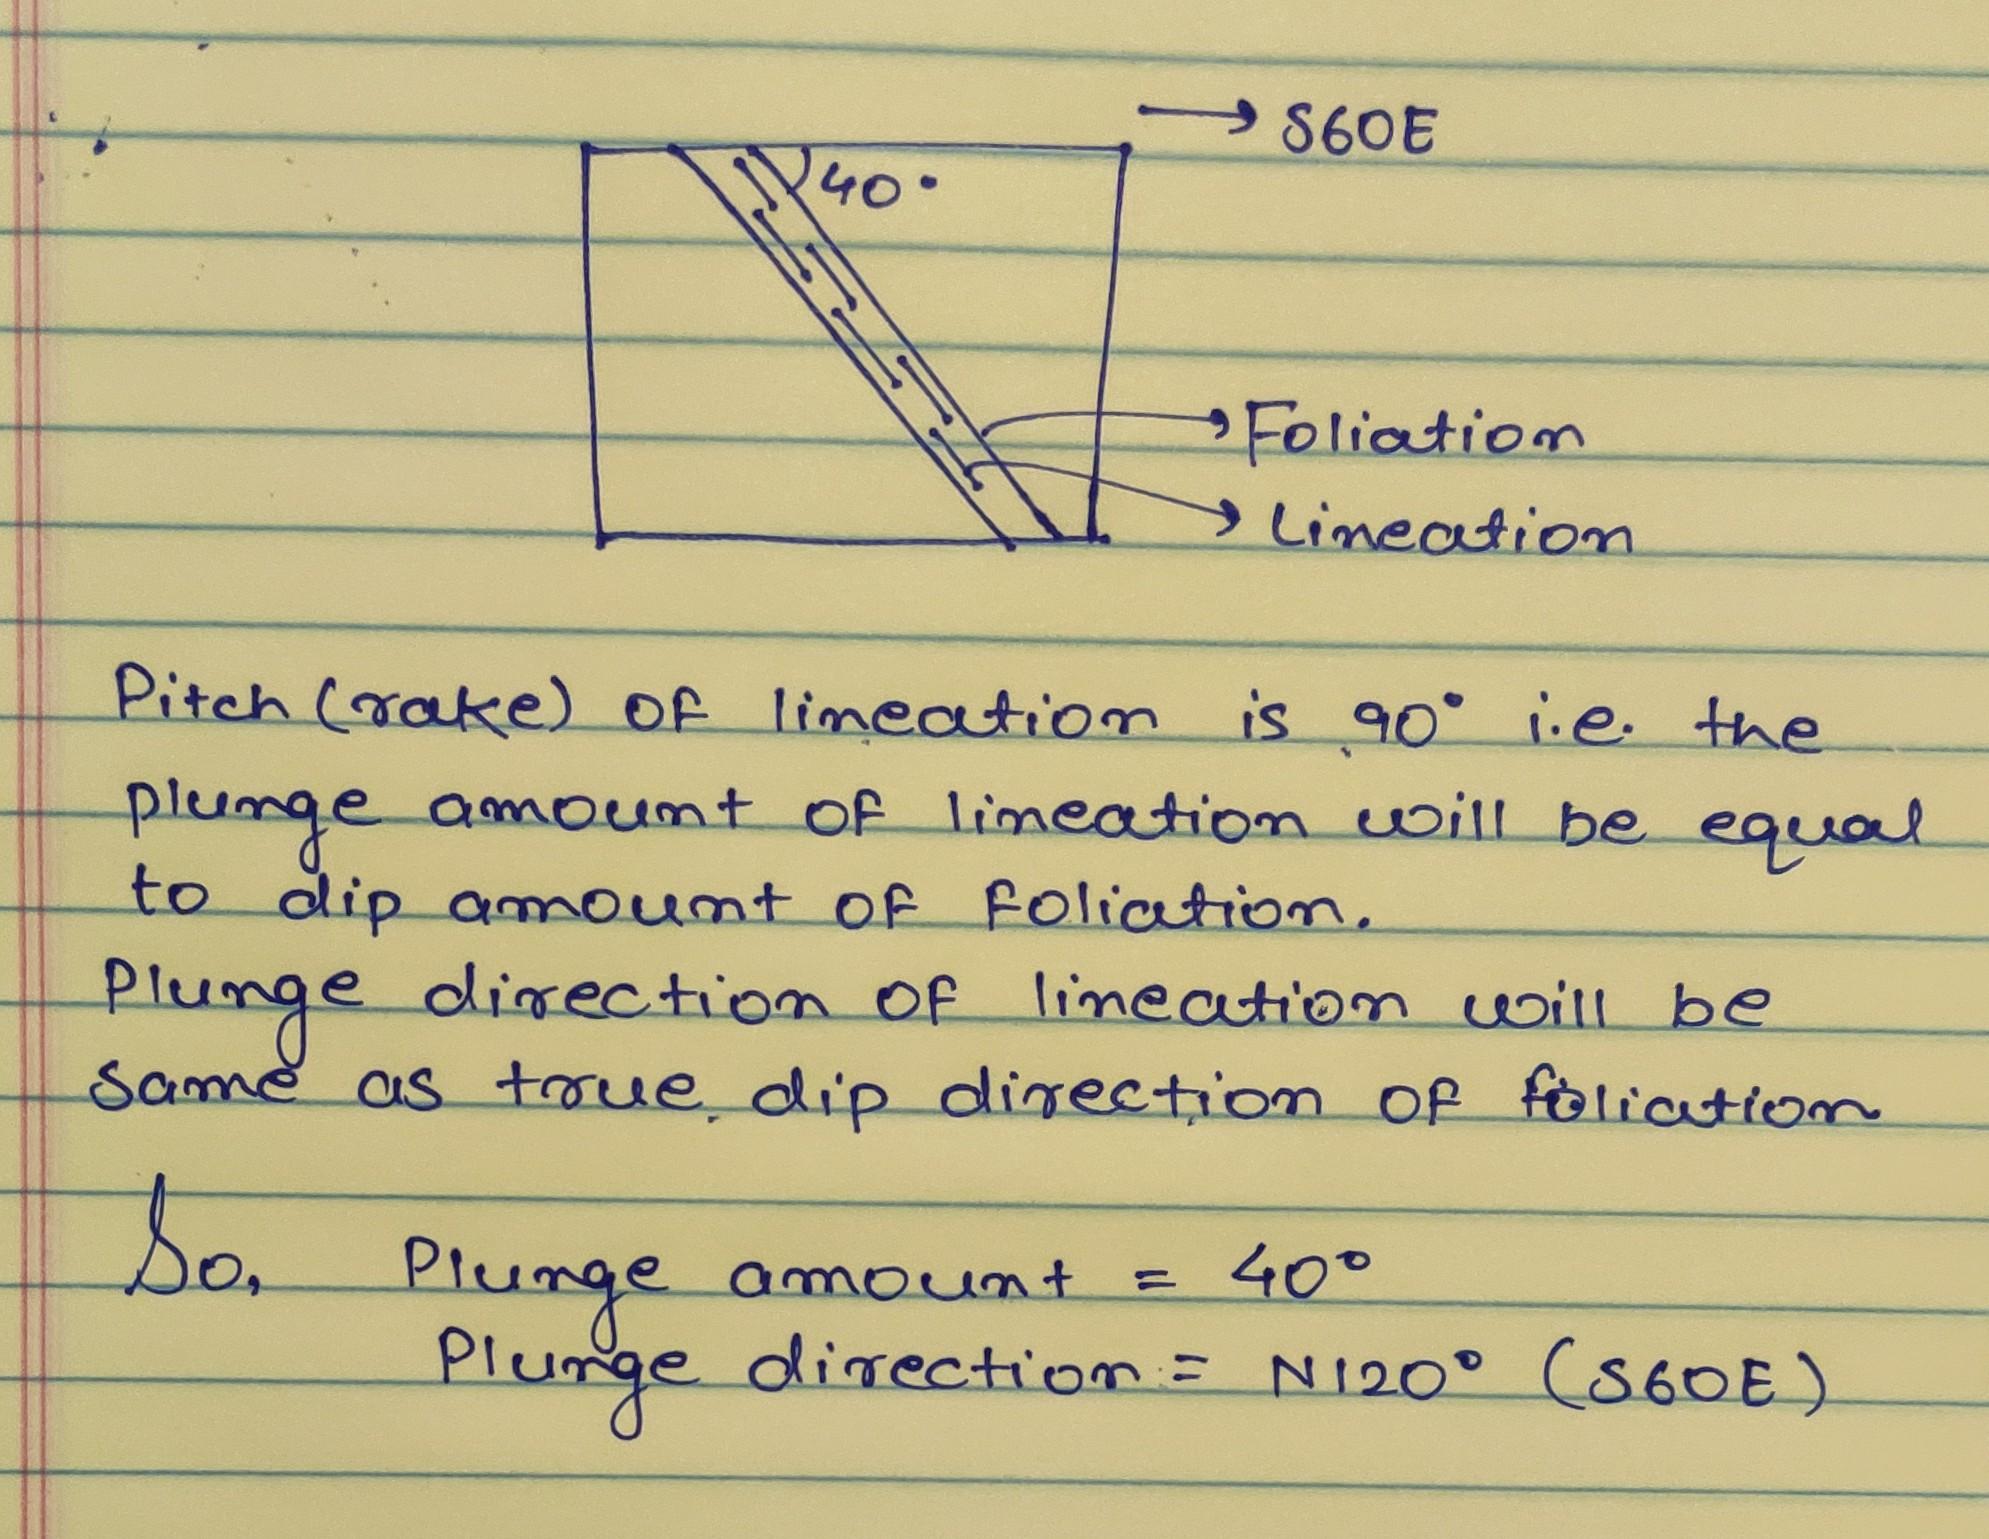 → S60E
40°
→ Foliation
→ Lineation
Pitch (rake) of lineation is 90° i.e. the
plunge amount of lineation will be equal
to dip amount of foliation.
Plunge direction of lineation will be
same as true dip direction of foliation
So, Plunge amount = 40°
Plunge direction = N120° (S60E)